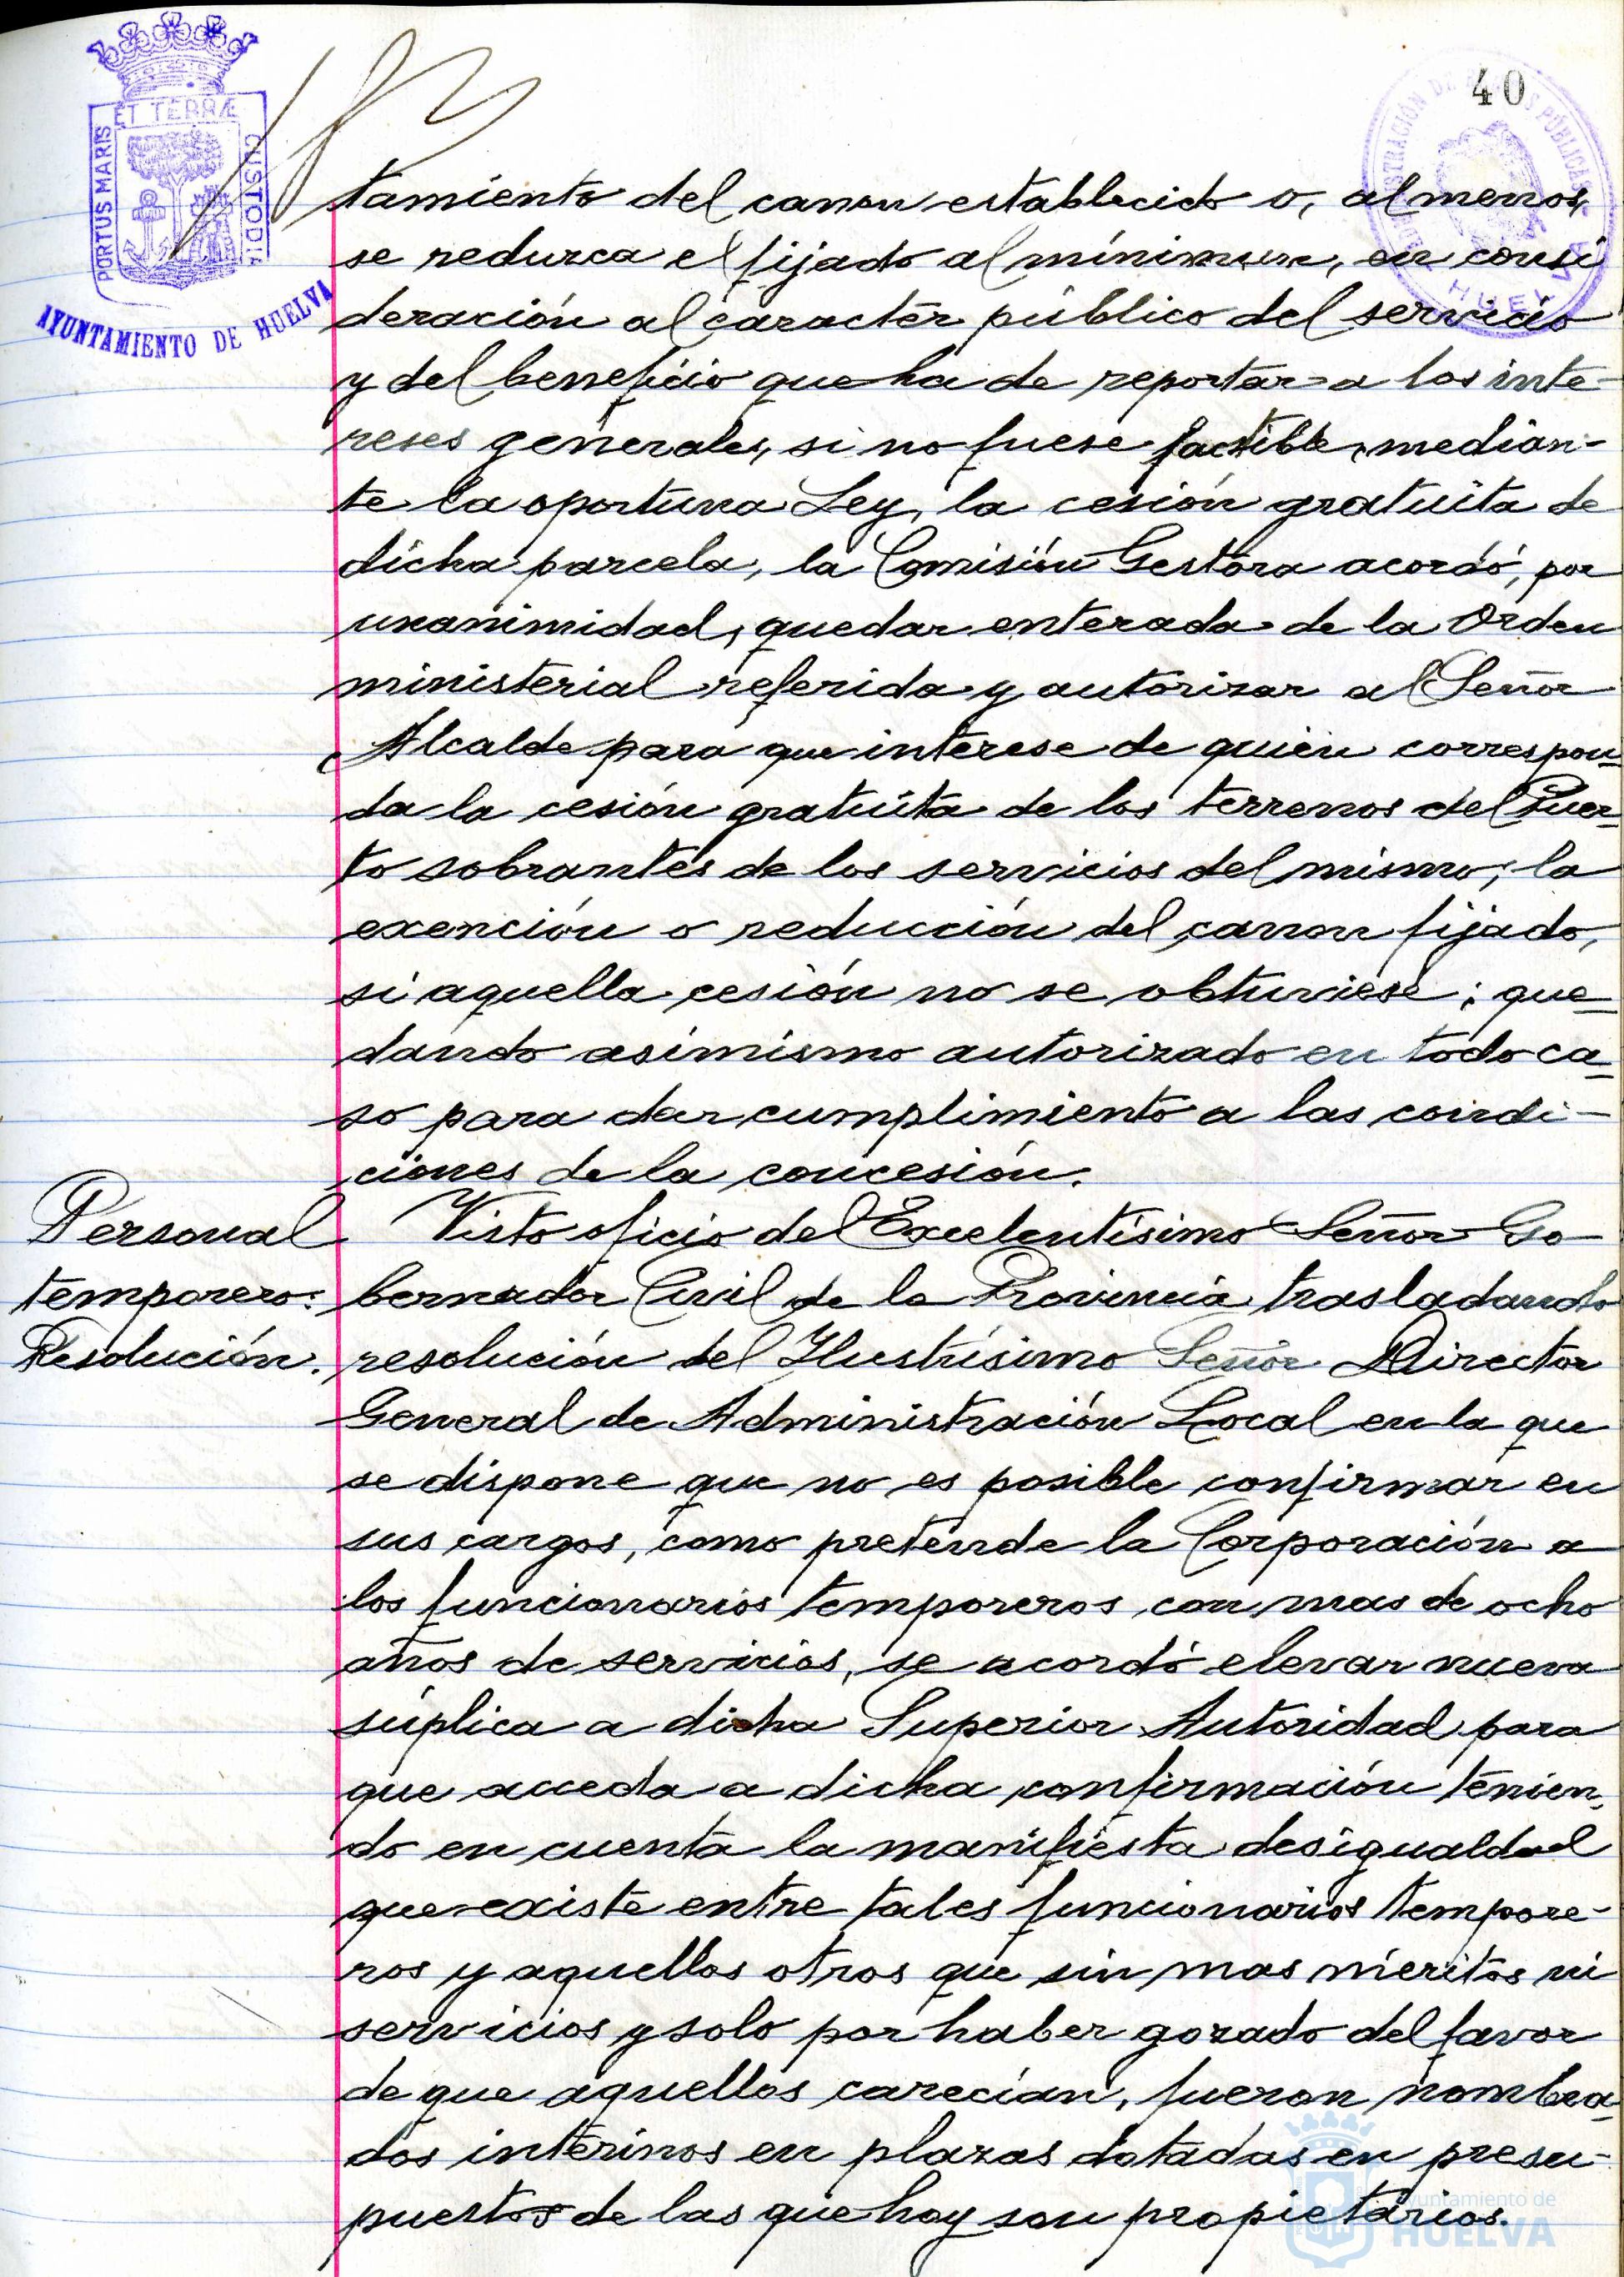 40
ET TERRÆ
PORTUS MARIS
CUSTODIA
AYUNTAMIENTO DE HUELVA
HUELVA
tamiento del canon establecido o, al menos,
se reduzca el fijado al mínimum, en consi
deración al carácter público del servicio
y del beneficio que ha de reportar a los inte-
reses generales, si no fuese factible, median-
te la oportuna Ley, la cesión gratuita de
dicha parcela, la Comisión Gestora acordó, por
unanimidad, quedar enterada de la Orden
ministerial referida y autorizar al Señor
Alcalde para que interese de quien correspon-
da la cesión gratuita de los terrenos del Puer-
to sobrantes de los servicios del mismo; la
exención o reducción del canon fijado,
si aquella cesión no se obtuviese; que-
dando asimismo autorizado en todo ca-
so para dar cumplimiento a las condi-
ciones de la concesión.
Personal
temporero.
Resolución.
Visto oficio del Excelentísimo Señor Go-
bernador Civil de la Provincia trasladando
resolución del Ilustrísimo Señor Director
General de Administración Local en la que
se dispone que no es posible confirmar en
sus cargos, como pretende la Corporación a
los funcionarios temporeros con mas de ocho
años de servicios, se acordó elevar nueva
súplica a dicha Superior Autoridad para
que acceda a dicha confirmación tenien-
do en cuenta la manifiesta desigualdad
que existe entre tales funcionarios tempore-
ros y aquellos otros que sin mas méritos ni
servicios y solo por haber gozado del favor
de que aquellos carecían, fueron nombra-
dos interinos en plazas dotadas en presu-
puestos de las que hoy son propietarios.
Ayuntamiento de
HUELVA